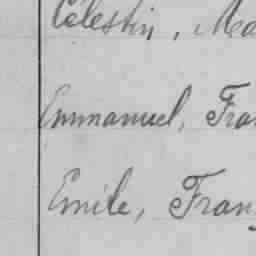 Célestin, Ma
Emmanuel, Fran
Emile, Franç